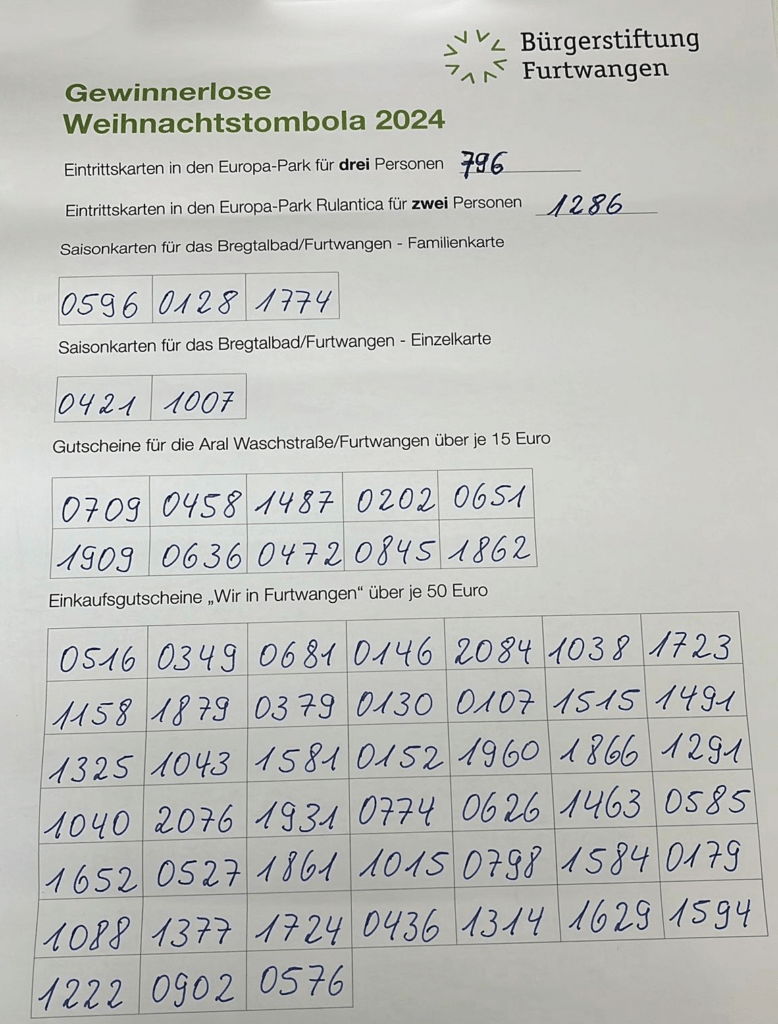 Bürgerstiftung
Furtwangen
Gewinnerlose
Weihnachtstombola 2024
Eintrittskarten in den Europa-Park für drei Personen 796
Eintrittskarten in den Europa-Park Rulantica für zwei Personen 1286
Saisonkarten für das Bregtalbad/Furtwangen - Familienkarte
0596 0128 1774
Saisonkarten für das Bregtalbad/Furtwangen - Einzelkarte
0421 1007
Gutscheine für die Aral Waschstraße/Furtwangen über je 15 Euro
0709 0458 1487 0202 0651
1909 0636 0472 0845 1862
Einkaufsgutscheine „Wir in Furtwangen“ über je 50 Euro
0516 0349 0681 0146 2084 1038 1723
1158 1879 0379 0130 0107 1515 1491
1325 1043 1581 0152 1960 1866 1291
1040 2076 1931 0774 0626 1463 0585
1652 0527 1861 1015 0798 1584 0179
1088 1377 1724 0436 1314 1629 1594
1222 0902 0576